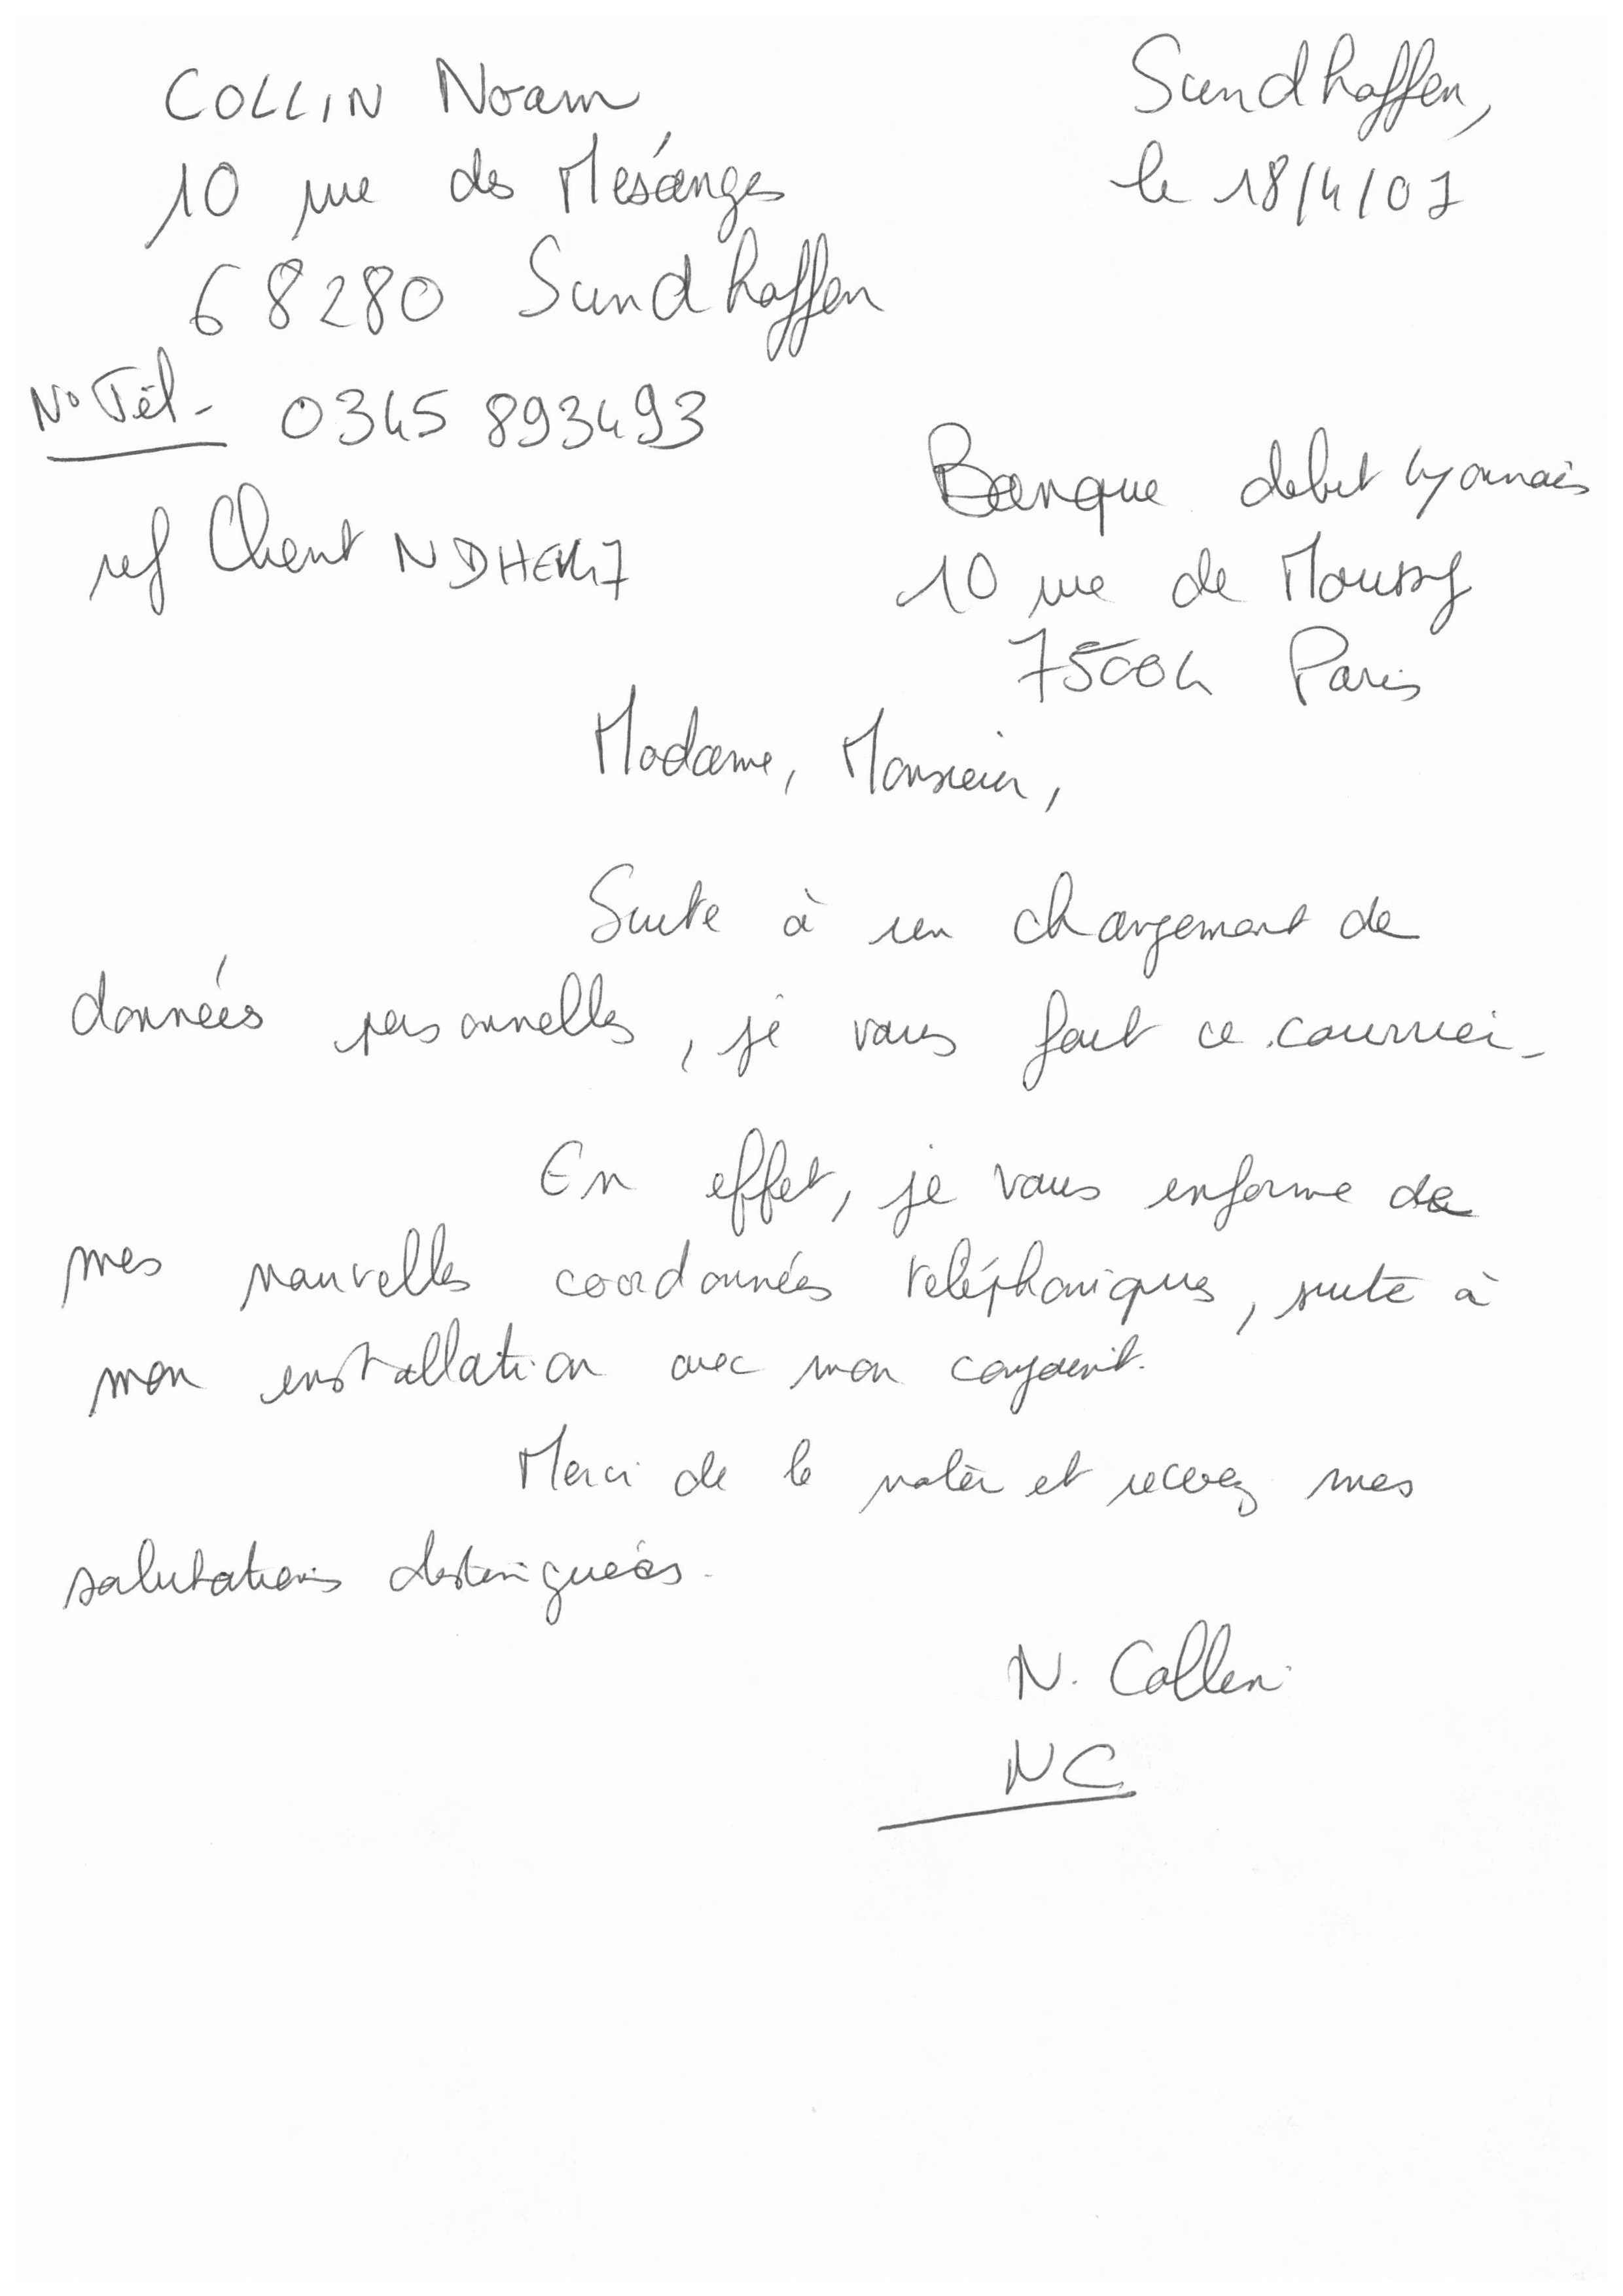 COLLIN Noam
10 rue des Mésanges
68280 Sundhoffen
N° Tél - 0345 893493
ref Client
Sundhoffen,
le 18/4/07
Banque debit lyonnais
10 rue de Moussy
75004 Paris
Madame, Monsieur,
Suite à un changement de
données personnelles, je vous fait ce courrier.
En effet, je vous informe de
mes nouvelles coordonnées téléphoniques, suite à
mon installation avec mon conjoint.
Merci de le noter et recevez mes
salutations distinguées.
N. Collin
NC